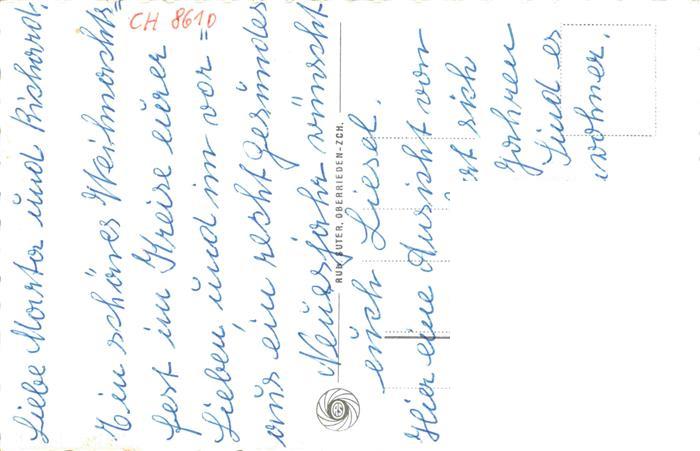 Liebe Marta und Richard,
Ein schönes Weihnachts=
fest im Kreise eurer
Lieben und im vor=
aus ein recht gesundes
Neuesjahr wünscht
euch Liesel.
Hier eine Aussicht von
rt sich
Jahren
Sind es
wohner.
CH 8610
RUD. SUTER, OBERRIEDEN-ZCH.